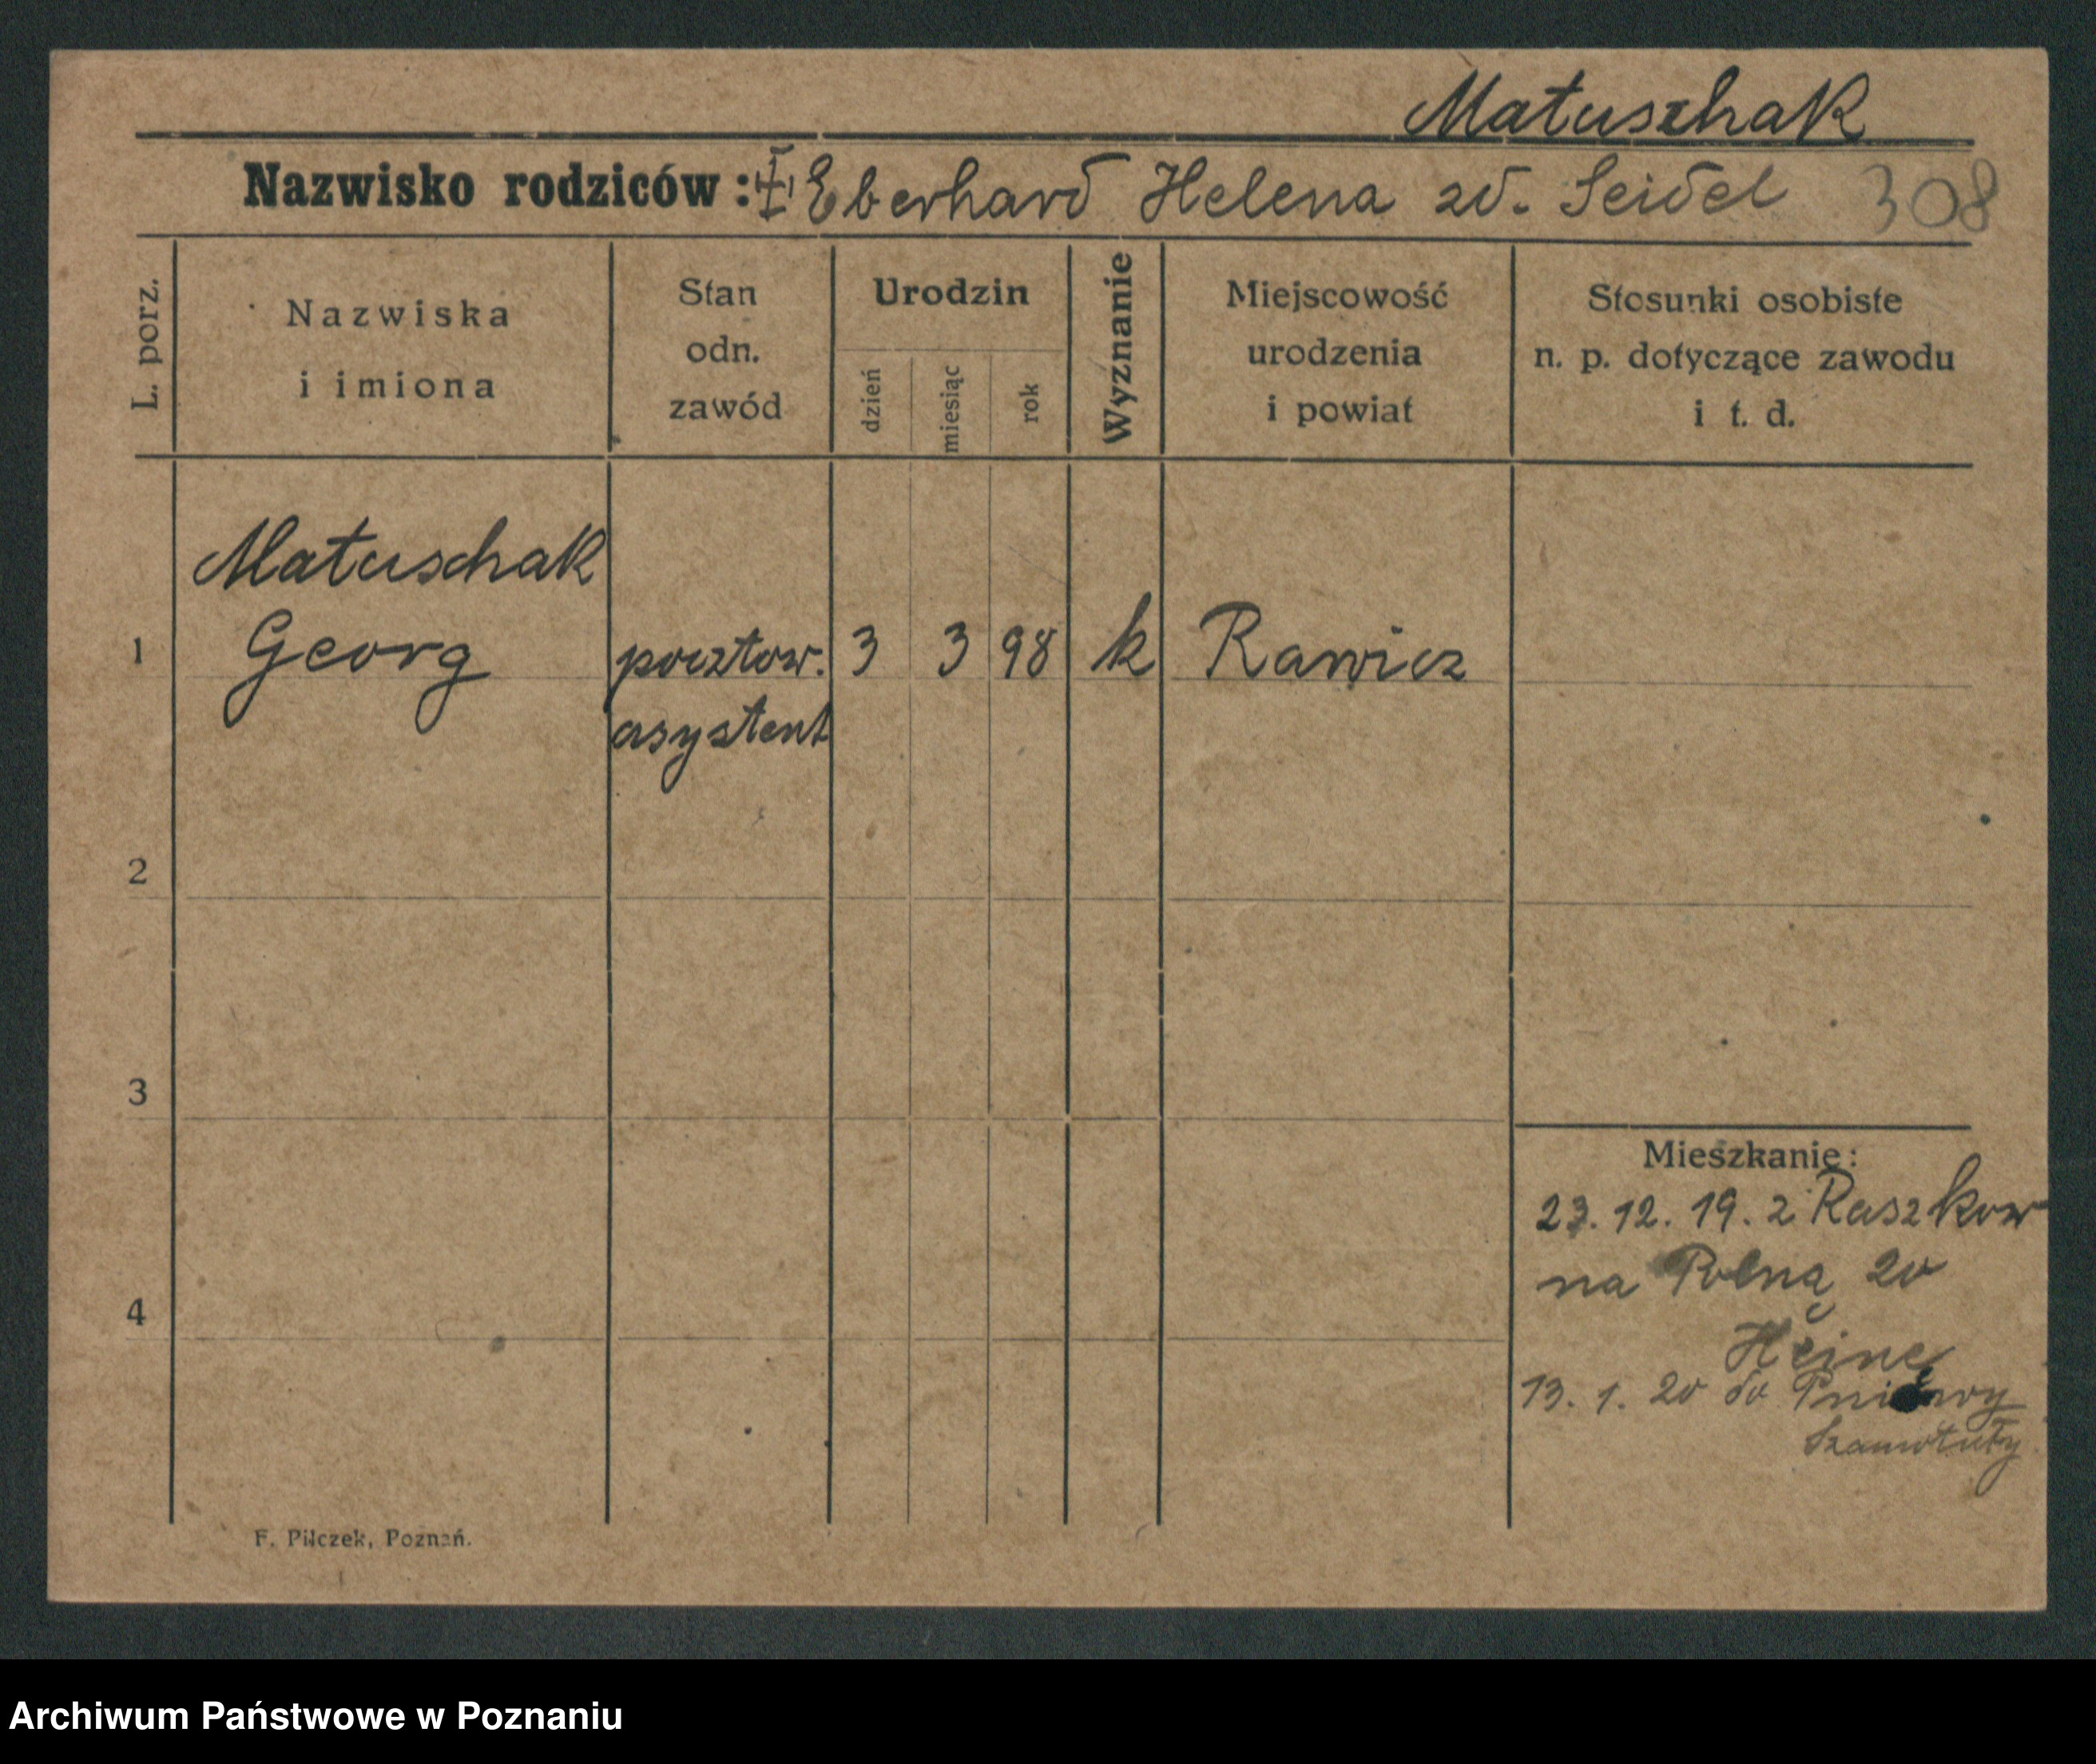 Matuschak
Nazwisko rodziców: Eberhard Helena zd. Seidel 308
L. porz.
Nazwiska
i imiona
Stan
odn.
zawód
Urodzin
dzień
miesiąc
rok
Wyznanie
Miejscowość
urodzenia
i powiat
Stosunki osobiste
n. p. dotyczące zawodu
i t. d.
Matuschak
1 Georg pocztow. 3 3 98 k Rawicz
asystent
2
3
Mieszkanie:
23. 12. 19. z Raszkow
na Polną 20
4
Heine
13. 1. 20 do Pniewy
Szamotuły
F. Pilczek, Poznań.
Archiwum Państwowe w Poznaniu